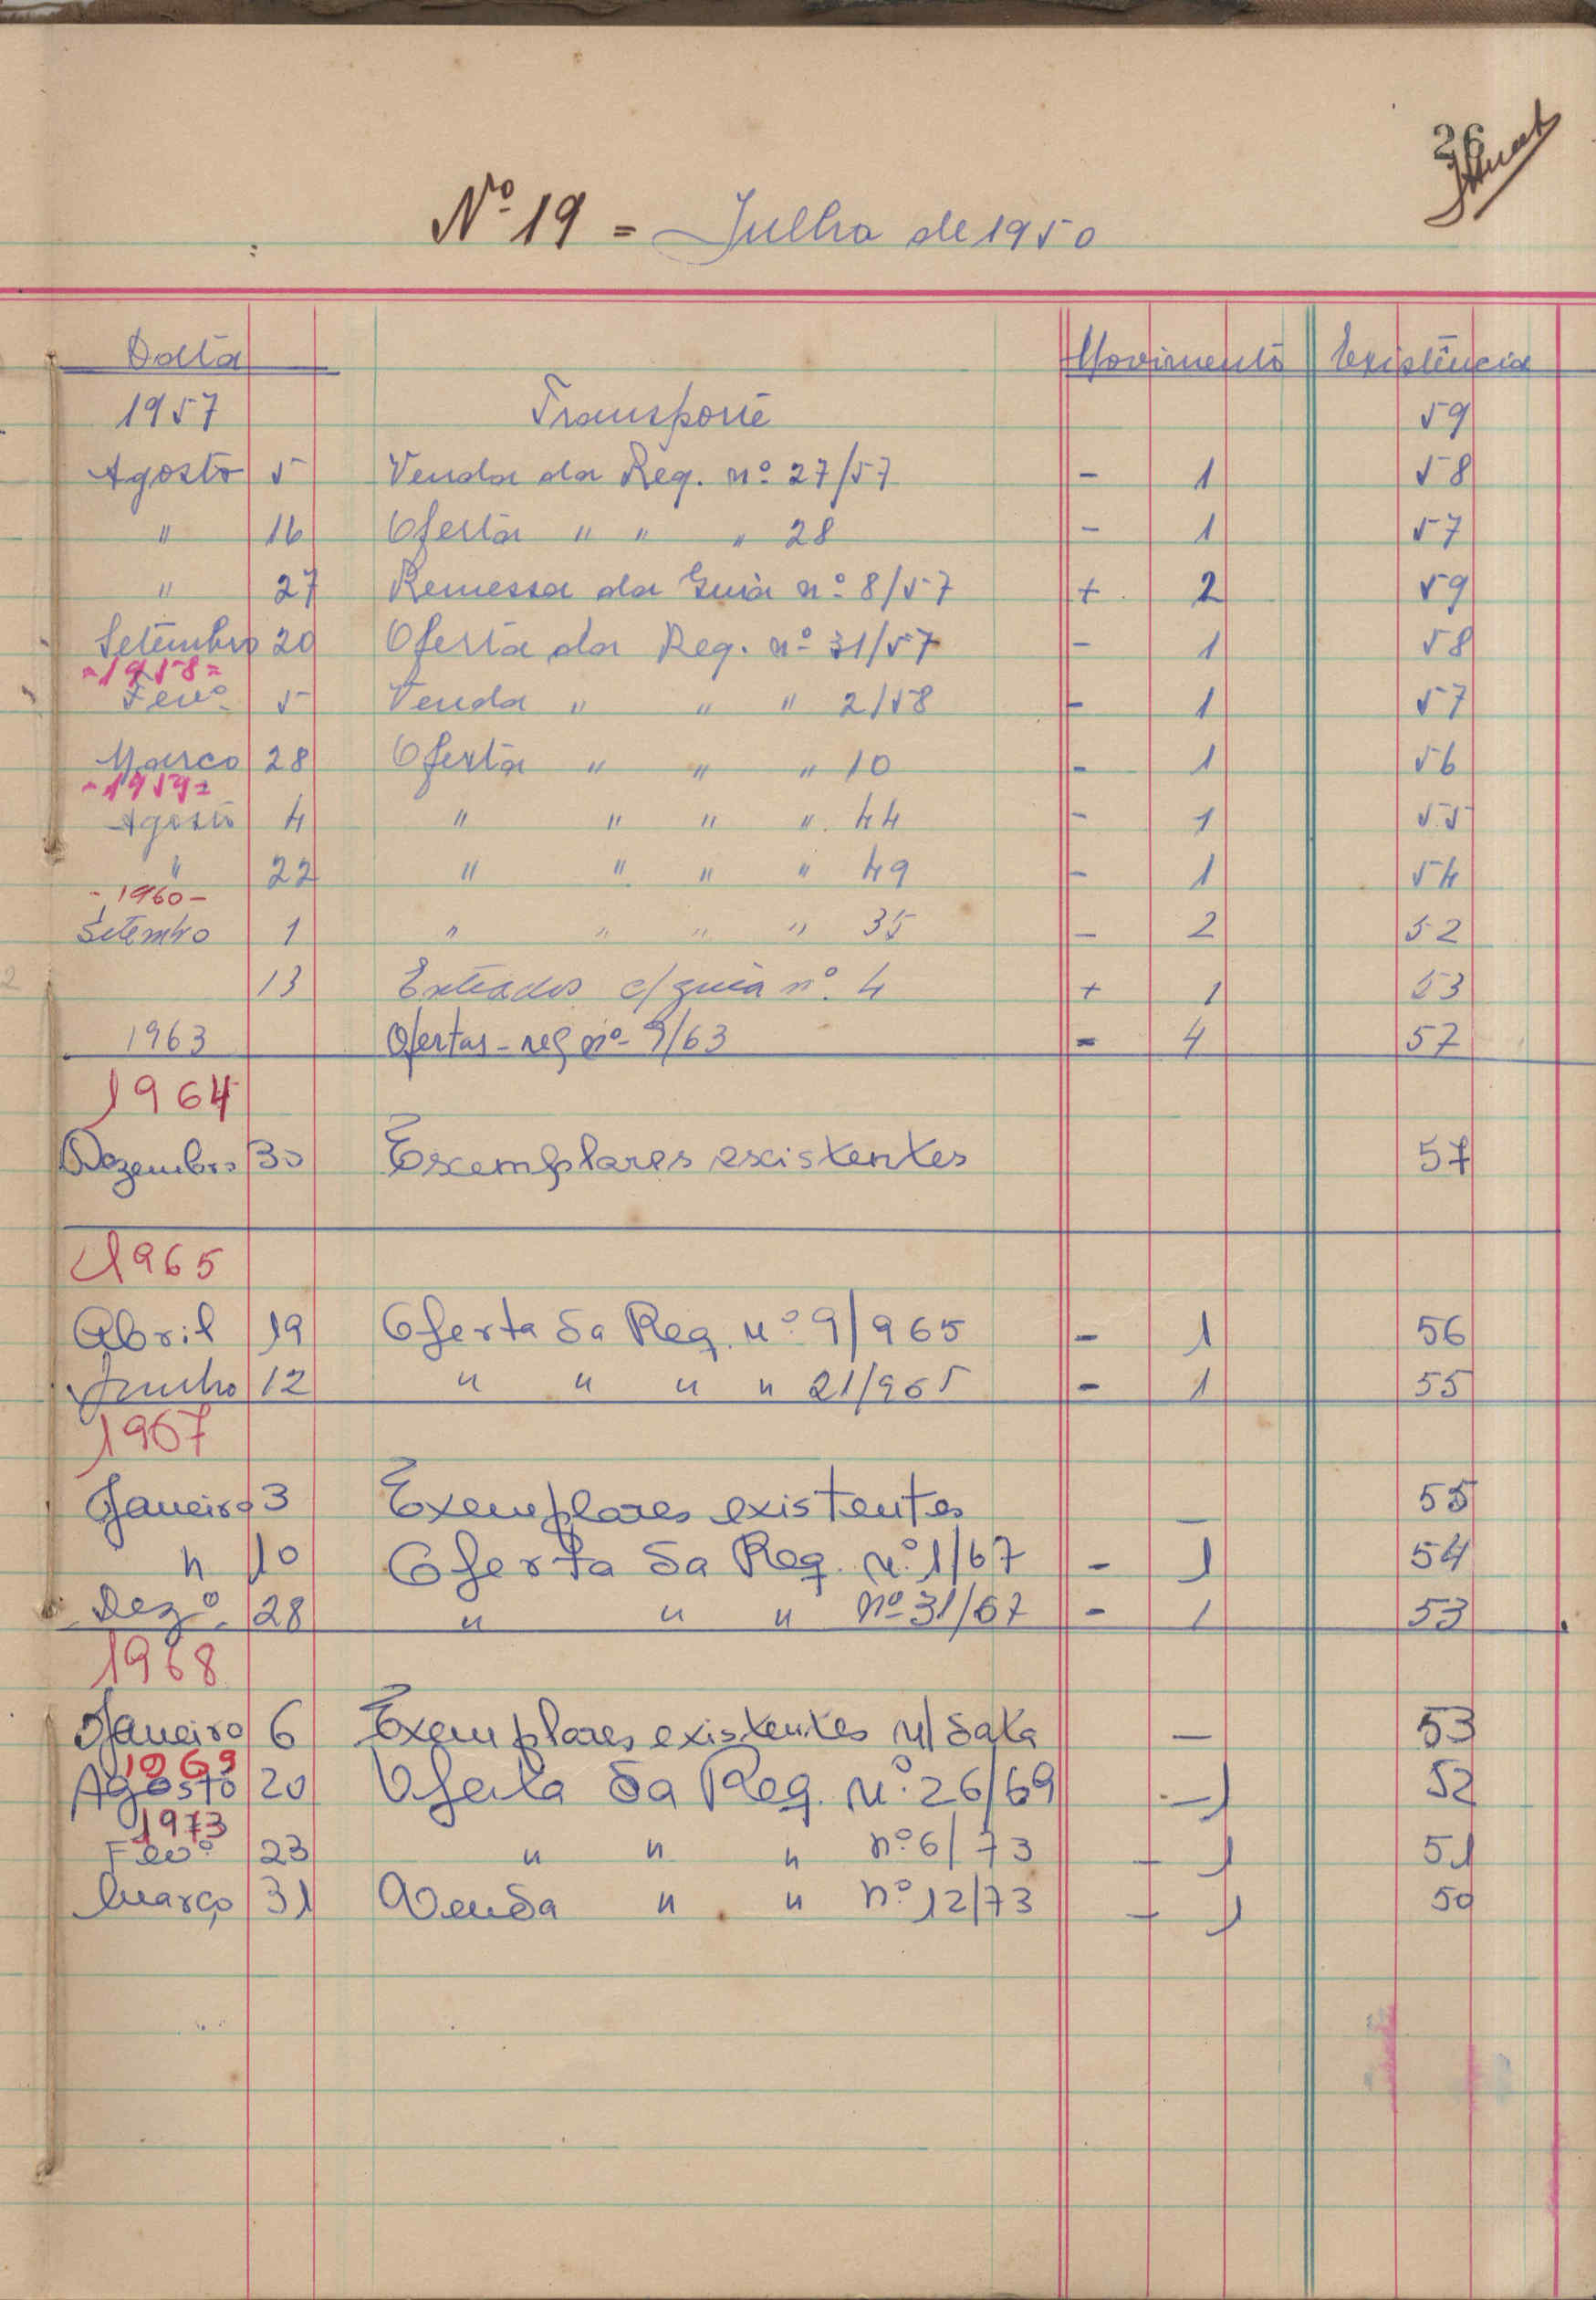 26
Nº 19 = Julho de 1950
Data Movimento Existência
1957 Transporte 59
Agosto 5 Venda da Req. nº 27/57 - 1 58
" 16 Oferta " " " 28 - 1 57
" 27 Remessa da Guia nº 8/57 + 2 59
Setembro 20 Oferta da Req. nº 31/57 - 1 58
-1958=
Fevº 5 Venda " " " 2/58 - 1 57
Março 28 Oferta " " " 10 - 1 56
-1959=
Agosto 4 " " " " 44 - 1 55
" 22 " " " " 49 - 1 54
-1960-
Setembro 1 " " " " 35 - 2 52
13 Entrados c/guia nº 4 + 1 53
1963 Ofertas - req nº 9/63 - 4 57
1964
Dezembro 30 Exemplares existentes 57
1965
Abril 19 Oferta da Req. nº 9/965 - 1 56
Junho 12 " " " " 21/965 - 1 55
1967
Janeiro 3 Exemplares existentes — 55
" 10 Oferta da Req. nº 1/67 - 1 54
Dezº. 28 " " " nº 31/67 - 1 53
1968
Janeiro 6 Exemplares existentes n/ data — 53
1969
Agosto 20 Oferta da Req. nº 26/69 - 1 52
1973
Fevº 23 " " " nº 6/73 - 1 51
Março 31 Venda " " nº 12/73 - 1 50